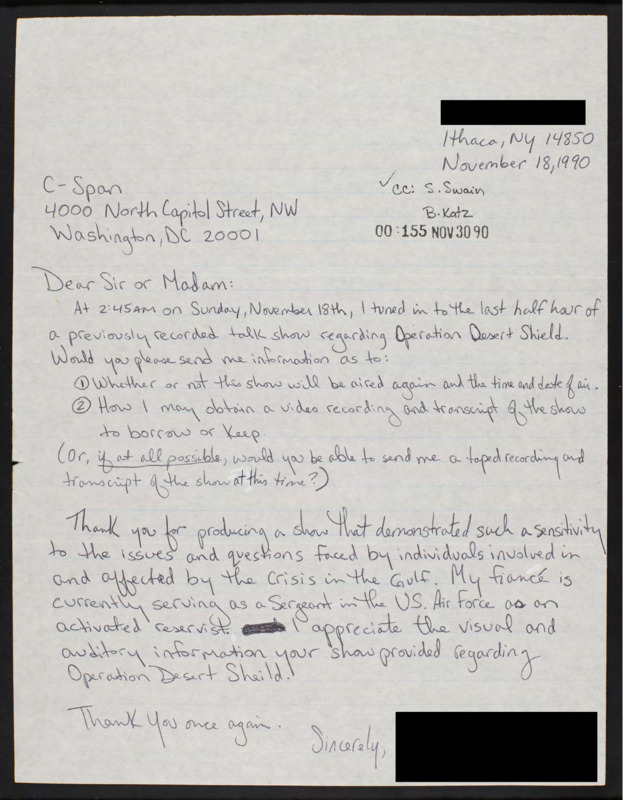 Ithaca, NY 14850
November 18, 1990
✓cc: S. Swain
B. Katz
00:155 NOV 30 90
C-Span
4000 North Capitol Street, NW
Washington, DC 20001
Dear Sir or Madam:
At 2:45AM on Sunday, November 18th, I tuned in to the last half hour of
a previously recorded talk show regarding Operation Desert Shield.
Would you please send me information as to:
① Whether or not this show will be aired again and the time and date of air.
② How I may obtain a video recording and transcript of the show
to borrow or keep.
(Or, if at all possible, would you be able to send me a taped recording and
transcript of the show at this time?)
Thank you for producing a show that demonstrated such a sensitivity
to the issues and questions faced by individuals involved in
and affected by the Crisis in the Gulf. My fiancé is
currently serving as a Sergeant in the U.S. Air Force as an
activated reservist. I appreciate the visual and
auditory information your show provided regarding
Operation Desert Sheild.
Thank you once again.
Sincerely,